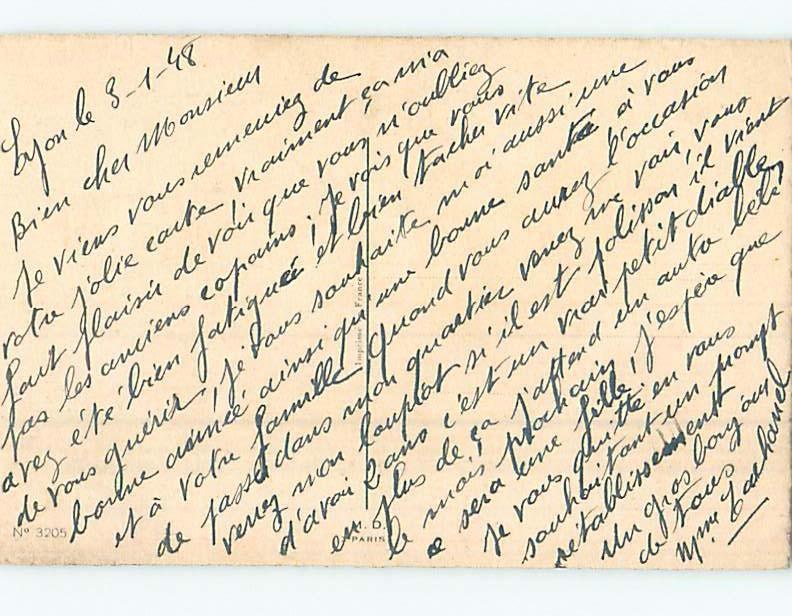 Lyon le 3-1-48
Bien cher Monsieur
Je viens vous remerciez de
votre jolie carte vraiment ça m'a
fait plaisir de voir que vous n'oubliez
pas les anciens copains, je vois que vous
avez été bien fatiguée et bien tacher vite
de vous guérir, je vous souhaite moi aussi une
bonne année ainsi qu'une bonne santée à vous
et à votre famille quand vous aurez l'occasion
de passer dans mon quartier venez me voir, vous
verrez mon loupiot s'il est polisson il vient
d'avoir 2 ans c'est un vrai petit diable,
en plus de ça j'attend un autre bébé
le mois prochain, j'espère que
ce sera une fille,
Je vous quitte en vous
souhaitant un prompt
rétablissement
Un gros bonjour
de tous
Mme
Imprimé France
Nº 3205
PARIS